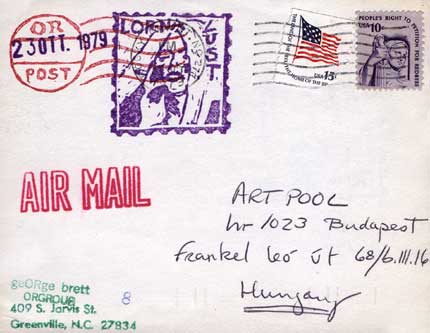 OR
23 OTT. 1979
POST
LORNA
JUST
USA 15c
PEOPLE'S RIGHT TO
PETITION FOR REDRESS
USA 10c
AIR MAIL
ART POOL
hr 1023 Budapest
Frankel leó út 68/b.III.16
Hungary
geORge brett
ORGROUP
409 S. Jarvis St.
Greenville, N.C. 27834
8